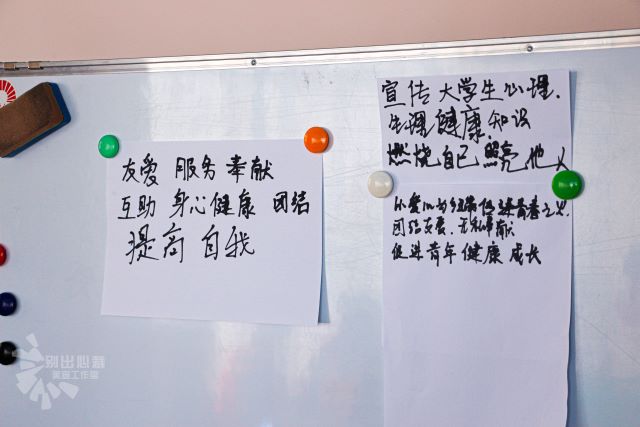 友爱 服务 奉献
互助 身心健康 团结
提高 自我
宣传大学生心理、
生理健康知识
燃烧自己 照亮他人
从爱心为 促进青春之
团结友爱、无私奉献
促进青年健康成长
别出心裁
工作室